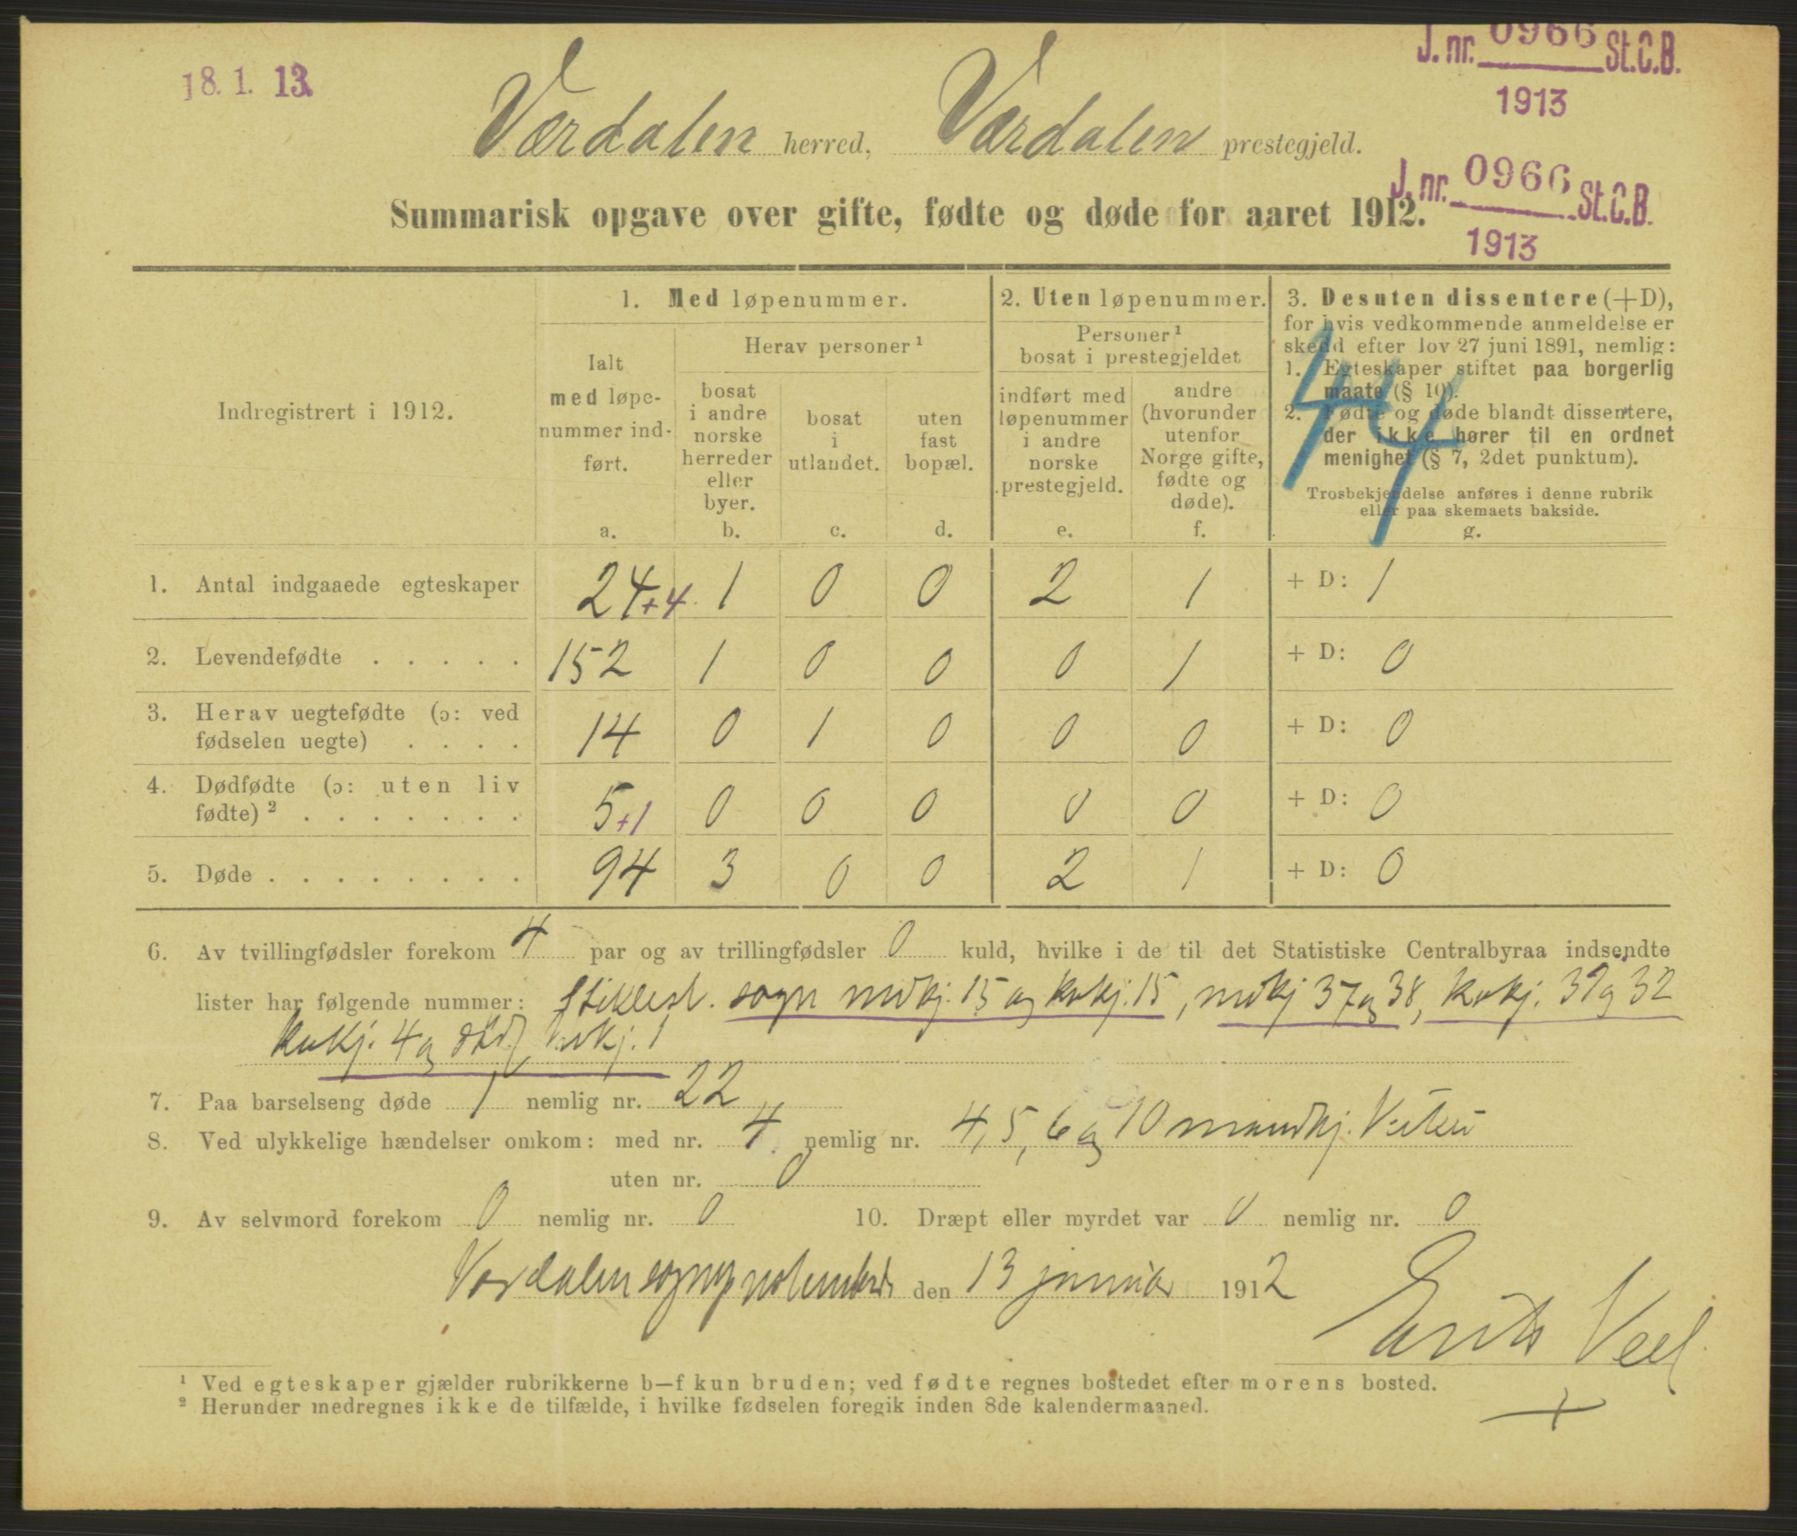 18. 1. 13.
J. nr. 0966 St.C.B.
1913
Værdalen herred, Værdalen prestegjeld.
J. nr. 0966 St.C.B.
1913
Summarisk opgave over gifte, fødte og døde for aaret 1912.
Indregistrert i 1912.
1. Med løpenummer.
Ialt
med løpe-
nummer ind-
ført.
a.
Herav personer ¹
bosat
i andre
norske
herreder
eller
byer.
b.
bosat
i
utlandet.
c.
uten
fast
bopæl.
d.
2. Uten løpenummer.
Personer ¹
bosat i prestegjeldet
indført med
løpenummer
i andre
norske
prestegjeld.
e.
andre
(hvorunder
utenfor
Norge gifte,
fødte og
døde).
f.
3. Desuten dissentere (+D),
for hvis vedkommende anmeldelse er
skedd efter lov 27 juni 1891, nemlig:
1. Egteskaper stiftet paa borgerlig
maate (§ 10).
2. Fødte og døde blandt dissentere,
der ikke hører til en ordnet
menighet (§ 7, 2det punktum).
Trosbekjendelse anføres i denne rubrik
eller paa skemaets bakside.
g.
44
1. Antal indgaaede egteskaper 24+4 1 0 0 2 1 + D: 1
2. Levendefødte . . . . . 152 1 0 0 0 1 + D: 0
3. Herav uegtefødte (ɔ: ved
fødselen uegte) . . . . 14 0 1 0 0 0 + D: 0
4. Dødfødte (ɔ: uten liv
fødte) ² . . . . . . . 5+1 0 0 0 0 0 + D: 0
5. Døde . . . . . . . . 94 3 0 0 2 1 + D: 0
6. Av tvillingfødsler forekom 4 par og av trillingfødsler 0 kuld, hvilke i de til det Statistiske Centralbyraa indsendte
lister har følgende nummer: Stiklest. sogn mdkj. 15 og kvkj. 15, mdkj 37 og 38, kvkj. 31 og 32
kvkj. 4 og dødf. kj. 1
7. Paa barselseng døde 1 nemlig nr. 22
8. Ved ulykkelige hændelser omkom: med nr. 4 nemlig nr. 4, 5, 6 og 10 mandkj.
uten nr. 0
9. Av selvmord forekom 0 nemlig nr. 0 10. Dræpt eller myrdet var 0 nemlig nr. 0
Værdalen den 13 januar 1912
Veel
¹ Ved egteskaper gjælder rubrikkerne b—f kun bruden; ved fødte regnes bostedet efter morens bosted.
² Herunder medregnes ikke de tilfælde, i hvilke fødselen foregik inden 8de kalendermaaned.